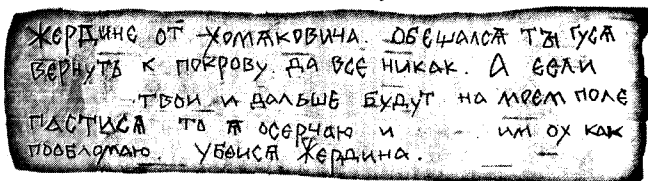 ЖЕРДИНЕ ОТ ХОМѦКОВИЧА. ОБЕЩАЛСѦ ТЪІ ГУСѦ
ВЕРНУТЬ К ПОКРОВУ. ДА ВСЕ НИКАК. А ЕСЛИ
ТВОИ И ДАЛЬШЕ БУДУТ НА МОЕМ ПОЛЕ
ПАСТИСѦ ТО Ѧ ОСЕРЧАЮ И ИМ ОХ КАК
ПООБЛОМАЮ. УБОИСѦ ЖЕРДИНА.